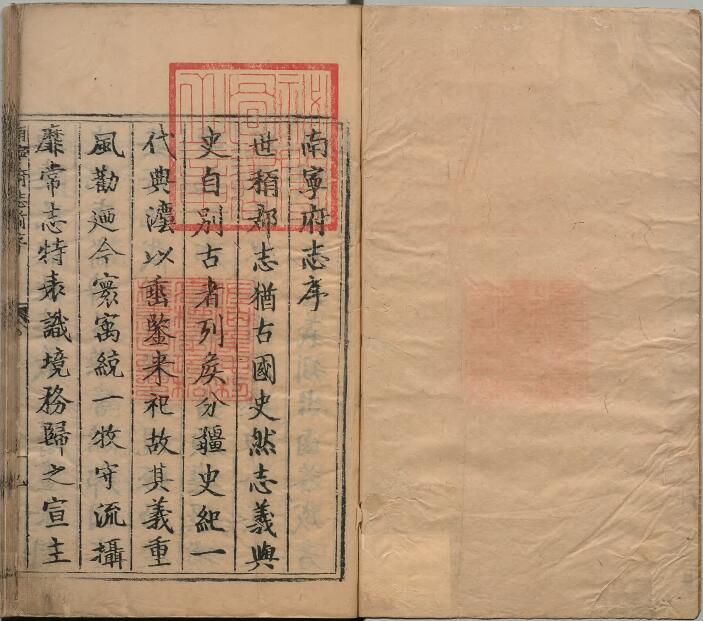 南寧府志序
世稱郡志猶古國史然志義與
史自別古者列矦分疆史紀一
代典灋以垂鑒来祀故其義重
風勸廼今寰㝢統一牧守流攝
靡常志特表識境務歸之宣主